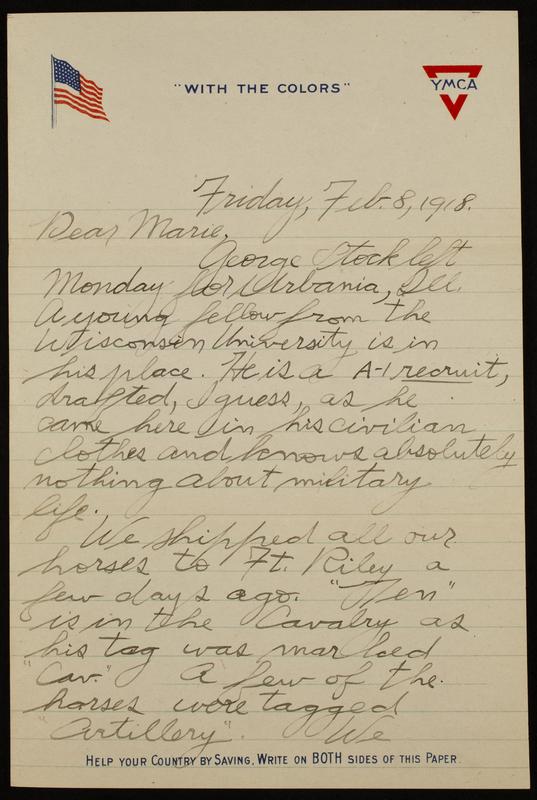 "WITH THE COLORS"
YMCA
Friday, Feb. 8, 1918.
Dear Marie,
George Stock left
Monday for Urbania, Ill.
A young fellow from the
Wisconsin University is in
his place. He is a A-1 recruit,
drafted, I guess, as he
came here in his civilian
clothes and knows absolutely
nothing about military
life.
We shipped all our
horses to Ft. Riley a
few days ago. "Ten"
is in the Cavalry as
his tag was marked
"Cav." A few of the
horses were tagged
"Artillery". We
HELP YOUR COUNTRY BY SAVING, WRITE ON BOTH SIDES OF THIS PAPER.